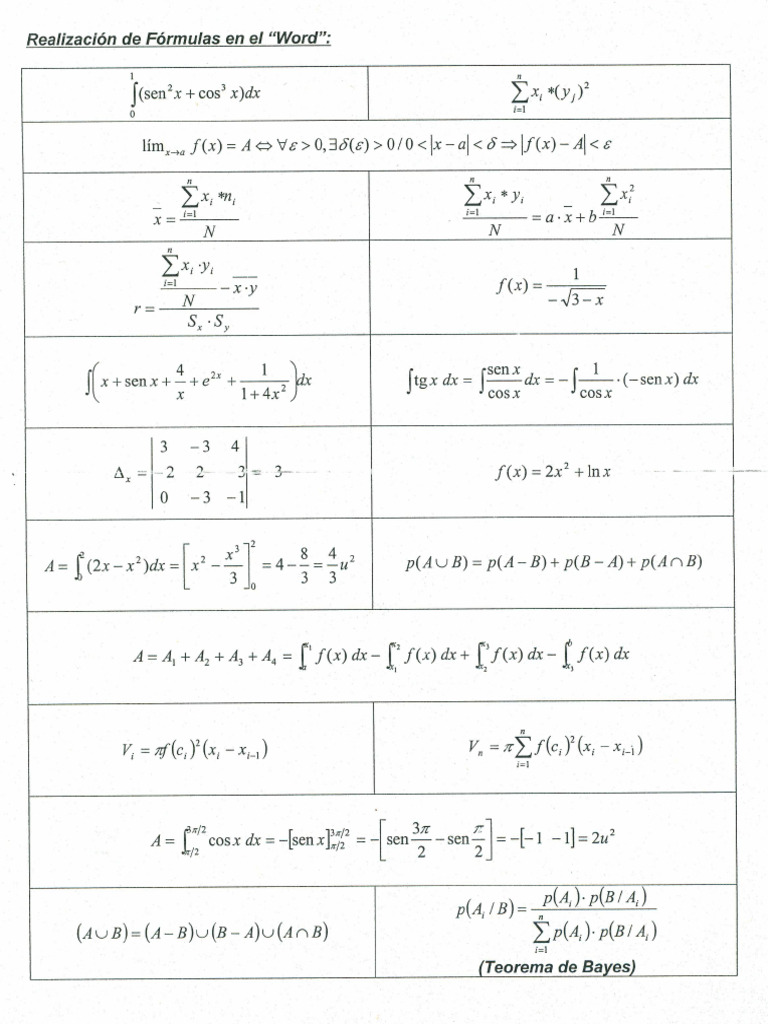 Realización de Fórmulas en el "Word":
∫₀¹(sen²x + cos³ x)dx
∑ᵢ₌₁ⁿ xᵢ *(yⱼ)²
límₓ→ₐ f(x) = A ⇔ ∀ε > 0, ∃δ(ε) > 0 / 0 < |x − a| < δ ⇒ |f(x) − A| < ε
x̅ = (∑ᵢ₌₁ⁿ xᵢ *nᵢ) / N
(∑ᵢ₌₁ⁿ xᵢ * yᵢ) / N = a · x̅ + b (∑ᵢ₌₁ⁿ xᵢ²) / N
r = ((∑ᵢ₌₁ⁿ xᵢ · yᵢ) / N − x̅·̅y̅) / (Sₓ · S_y)
f(x) = 1 / (− √3 − x)
∫(x + sen x + 4/x + e²ˣ + 1/(1 + 4x²))dx
∫tg x dx = ∫(sen x / cos x) dx = −∫(1 / cos x) · (−sen x) dx
Δₓ = | 3 −3 4 |
| −2 2 3 | = 3
| 0 −3 −1 |
f(x) = 2x² + ln x
A = ∫₀²(2x − x²)dx = [x² − x³/3]₀² = 4 − 8/3 = 4/3 u²
p(A ∪ B) = p(A − B) + p(B − A) + p(A ∩ B)
A = A₁ + A₂ + A₃ + A₄ = ∫ₐ^x₁ f(x) dx − ∫ₓ₁^x₂ f(x) dx + ∫ₓ₂^x₃ f(x) dx − ∫ₓ₃^b f(x) dx
Vᵢ = πf(cᵢ)²(xᵢ − xᵢ₋₁)
Vₙ = π∑ᵢ₌₁ⁿ f(cᵢ)²(xᵢ − xᵢ₋₁)
A = ∫_π/2^3π/2 cos x dx = −[sen x]_π/2^3π/2 = −[sen 3π/2 − sen π/2] = −[−1 −1] = 2u²
(A ∪ B) = (A − B) ∪ (B − A) ∪ (A ∩ B)
p(Aᵢ / B) = p(Aᵢ) · p(B / Aᵢ) / ∑ᵢ₌₁ⁿ p(Aᵢ) · p(B / Aᵢ)
(Teorema de Bayes)